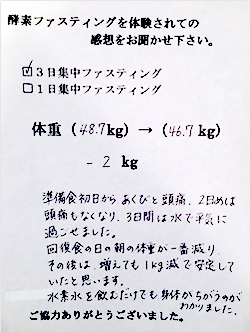 酵素ファスティングを体験されての
感想をお聞かせ下さい。
☑3日集中ファスティング
□1日集中ファスティング
体重(48.7kg)→(46.7kg)
－2 kg
準備食初日からあくびと頭痛、2日めは
頭痛もなくなり、3日間は水で平気に
過ごせました。
回復食の日の朝の体重が一番減り、
その後は、増えても1kg減で安定して
いたと思います。
水素水を飲むだけでも身体がちがうのが
わかりました。
ご協力ありがとうございました。